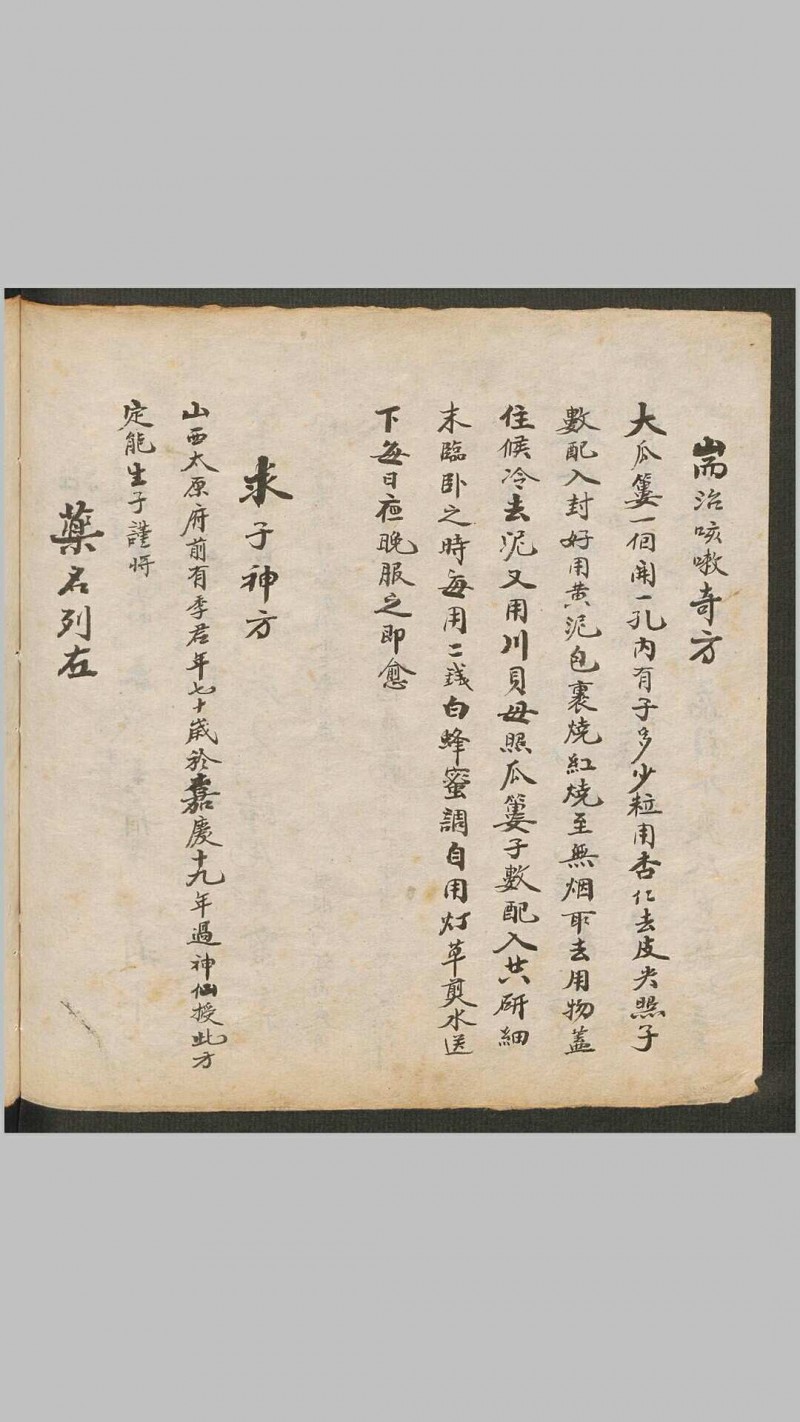 耑治咳嗽奇方
大瓜蔞一個開一孔內有子多少粒用杏仁去皮尖照子
數配入封好用黄泥包裹燒紅燒至無烟取去用物蓋
住候冷去泥又用川貝毋照瓜蔞子數配入共研細
末臨卧之時每用二錢白蜂蜜調自用灯草煎水送
下每日夜晚服之即愈
求子神方
山西太原府前有李君年七十歲於嘉慶十九年遇神仙授此方
定能生子謹將
藥名列左